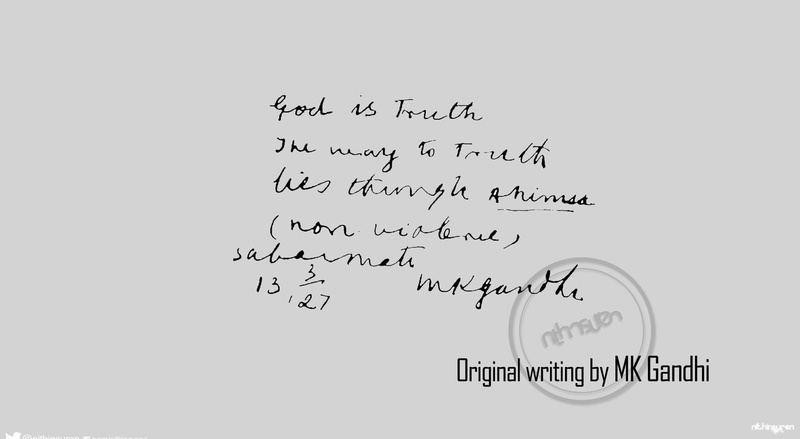 God is Truth
The way to Truth
lies through ahimsa
(non violence)
Sabarmati
13 3/27
MKGandhi
nithinsuren
Original writing by MK Gandhi
nithinsuren